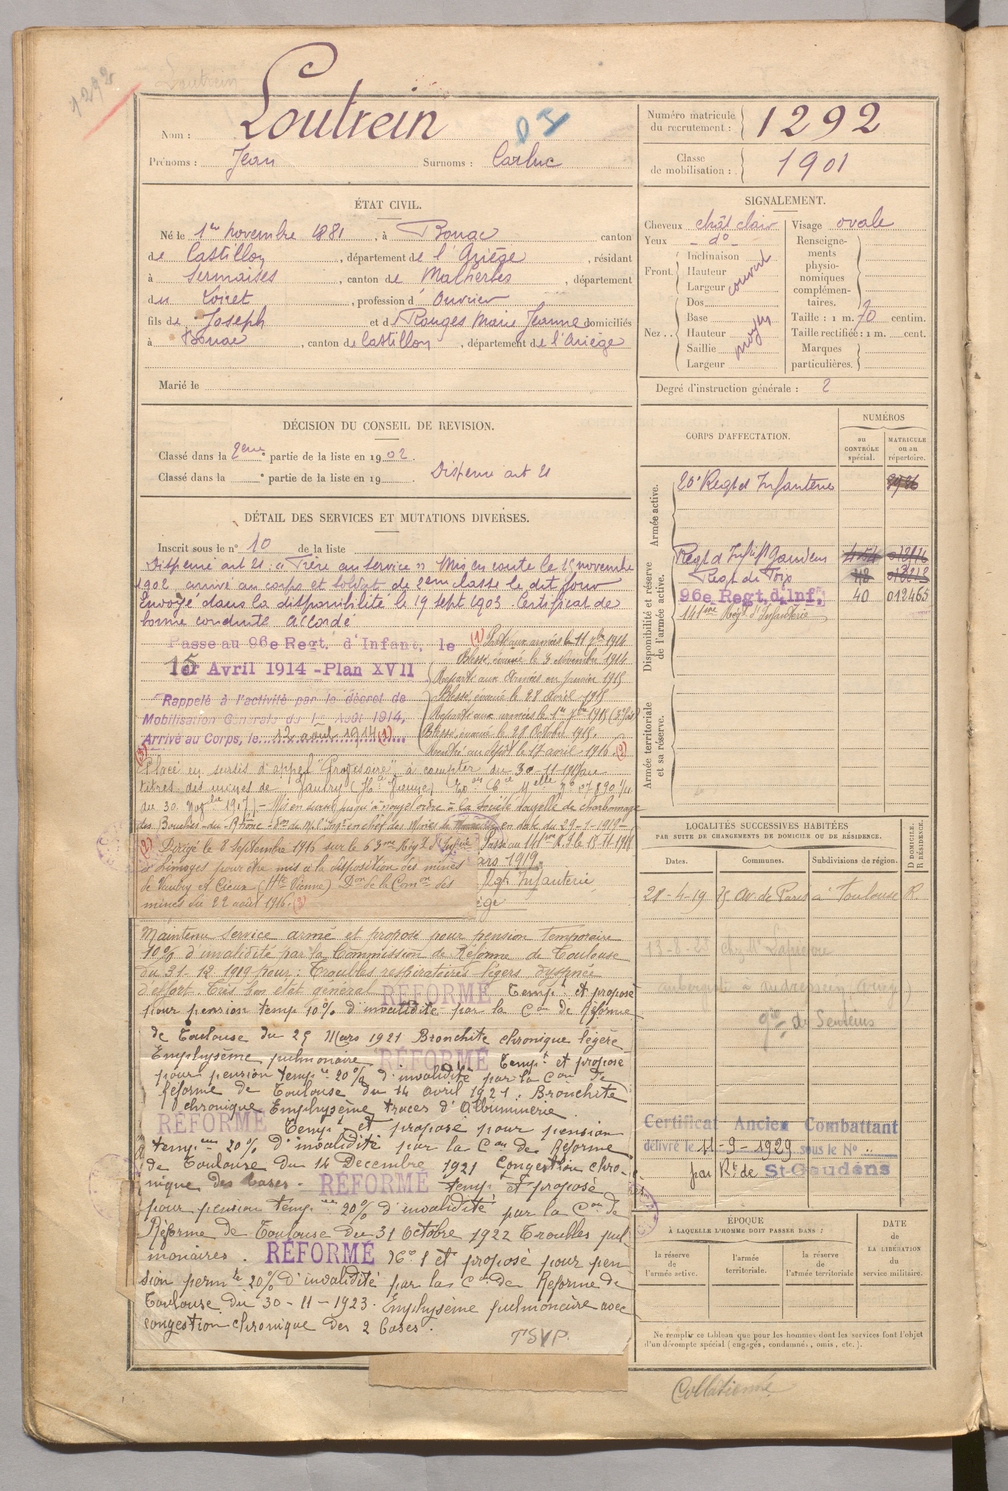 1292
Nom : Loutrein
D I
Prénoms : Jean Surnoms : Carluc
Numéro matricule du recrutement : 1292
Classe de mobilisation : 1901
ÉTAT CIVIL.
Né le 1er novembre 1881, à Bonac canton
de Castillon, département de l'Ariège, résidant
à Sermaises, canton de Malherbes, département
du Loiret, profession d'Ouvrier
fils de Joseph et de Rouges Marie Jeanne domiciliés
à Bonac, canton de Castillon, département de l'Ariège
Marié le
SIGNALEMENT.
Cheveux chât clair Visage ovale
Yeux - do -
Front. Inclinaison
Hauteur
Largeur
couvert
Nez. Dos
Base
Hauteur
Saillie
Largeur
moyen
Renseignements physionomiques complémentaires.
Taille : 1 m. 70 centim.
Taille rectifiée : 1 m. cent.
Marques particulières.
Degré d'instruction générale : 2
DÉCISION DU CONSEIL DE REVISION.
Classé dans la 2eme partie de la liste en 1902.
Classé dans la partie de la liste en 19
Dispensé art 21
DÉTAIL DES SERVICES ET MUTATIONS DIVERSES.
Inscrit sous le n° 10 de la liste
Dispensé art 21. "Frère au service" Mis en route le 15 novembre
1902 arrivé au corps et soldat de 2eme classe le dit jour
Envoyé dans la disponibilité le 19 sept 1903. Certificat de
bonne conduite Accordé
Passe au 96e Regt. d'Infant. le
1er Avril 1914 - Plan XVII
Rappelé à l'activité par le décret de
Mobilisation Générale du 1er Août 1914,
Arrivé au Corps, le 12 août 1914 (1)
(1) Parti aux armées le 11 9bre 1914
Blessé, évacué le 3 Novembre 1914
Reparti aux Armées en janvier 1915
Blessé, évacué le 28 Avril 1915
Reparti aux armées le 1er
Blessé, évacué le 28 Octobre 1915.
Rentré au dépôt le 17 avril 1916 (2)
Placé en sursis d'appel "Provisoire" à compter du 30-11-1917 au
titres des mines de Vaulry (Hte Vienne)
du 30 Nov bre 1917 - Mis en sursis jusqu'à nouvel ordre à la Société nouvelle de charbonnage
des Bouches-du-Rhône en date du 29-1-1919 -
(2) Dirigé le 8 Septembre 1916 sur le 63eme Régt d'Infrie
à Limoges pour être mis à la disposition des mines
de Vaulry et Cieux (Hte Vienne) Don de la Comon des
mines du 22 août 1916. (3)
Passé au 141eme R.I. le
1919
Regt Infanterie
Maintenu Service armé et proposé pour pension temporaire
10% d'invalidité par la Commission de Réforme de Toulouse
du 31-12 1919 pour : Troubles respiratoires légers dyspnée
d'effort. Très bon état général RÉFORMÉ Tempt et proposé
pour pension temp 10% d'invalidité par la Con de Réforme
de Toulouse du 25 Mars 1921 Bronchite chronique légère
Emphysème pulmonaire RÉFORMÉ Tempt et proposé
pour pension tempre 20% d'invalidité par la Con de
Réforme de Toulouse du 14 avril 1921. Bronchite
chronique Emphysème traces d'Albuminerie
RÉFORMÉ Tempt et proposé pour pension
tempre 20% d'invalidité par la Con de Réforme
de Toulouse du 14 Décembre 1921 Congestion chro-
nique des bases. RÉFORMÉ tempt et proposé
pour pension tempre 20% d'invalidité par la Con de
Réforme de Toulouse du 31 Octobre 1922 Troubles pul
monaires. RÉFORMÉ No 1 et proposé pour pen-
sion permte 20% d'invalidité par la Con de Réforme de
Toulouse du 30-11-1923. Emphysème pulmonaire avec
congestion chronique des 2 bases.
TSVP
CORPS D'AFFECTATION.
NUMÉROS
au CONTRÔLE spécial.
MATRICULE ou au répertoire.
Armée active.
20e Regt d'Infanterie
Disponibilité et réserve de l'armée active.
Regt d'Infie St Gaudens
Regt de Foix
96e Regt. d'Inf. 40 012465
141eme Régt d'Infanterie
Armée territoriale et sa réserve.
LOCALITÉS SUCCESSIVES HABITÉES
PAR SUITE DE CHANGEMENTS DE DOMICILE OU DE RÉSIDENCE.
D. DOMICILE. R. RÉSIDENCE.
Dates. Communes. Subdivisions de région.
28-4-19 75 Av de Paris à Toulouse R.
aubergiste à
Certificat Ancien Combattant
délivré le 11-9-1929 sous le No
par Rt de St-Gaudens
ÉPOQUE
À LAQUELLE L'HOMME DOIT PASSER DANS :
la réserve de l'armée active.
l'armée territoriale.
la réserve de l'armée territoriale
DATE de LA LIBÉRATION du service militaire.
Ne remplir ce tableau que pour les hommes dont les services font l'objet
d'un décompte spécial (engagés, condamnés, omis, etc.).
Collationné